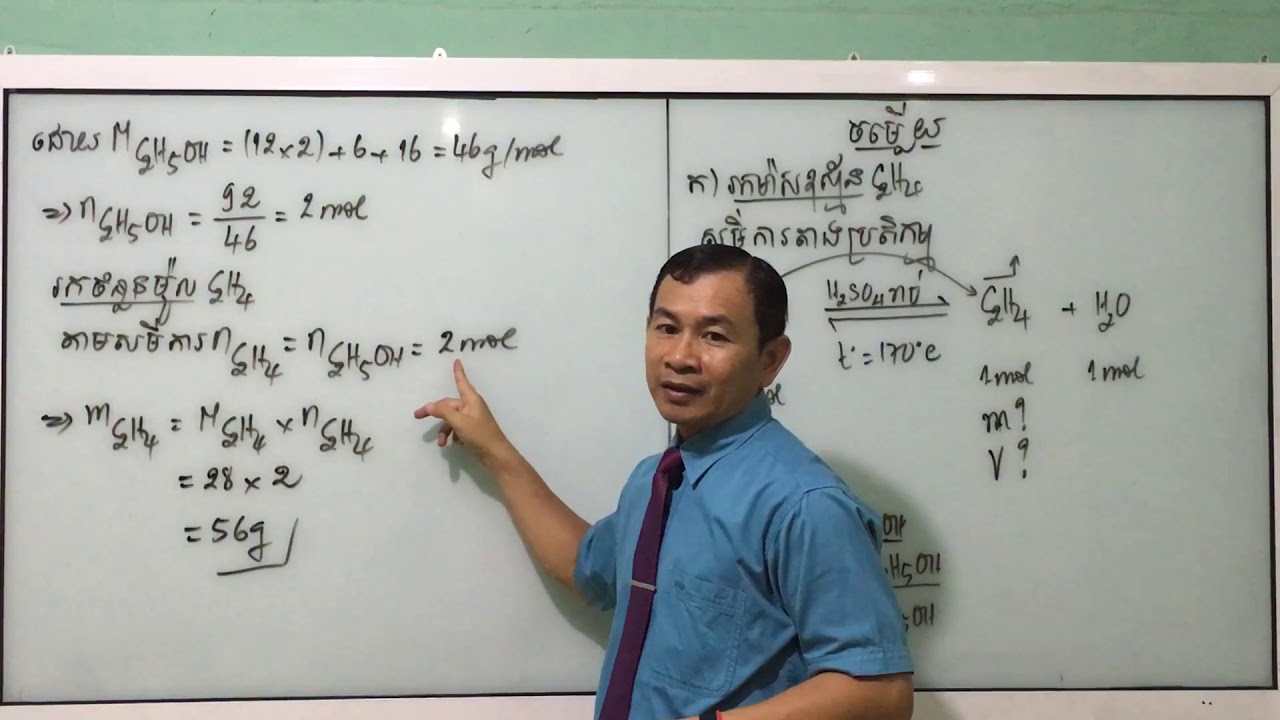 ដោយ M C₂H₅OH = (12×2)+6+16 = 46g/mol
⇒ n C₂H₅OH = 92/46 = 2mol
រកចំនួនម៉ូល C₂H₄
តាមសមីការ n C₂H₄ = n C₂H₅OH = 2mol
⇒ m C₂H₄ = M C₂H₄ × n C₂H₄
= 28 × 2
= 56g
ចម្លើយ
ក) រកម៉ាសឧស្ម័ន C₂H₄
សមីការតាងប្រតិកម្ម
H₂SO₄ ខាប់
t° = 170°C
C₂H₄ + H₂O
1mol 1mol
m?
V?
OH
H₅OH
₅OH